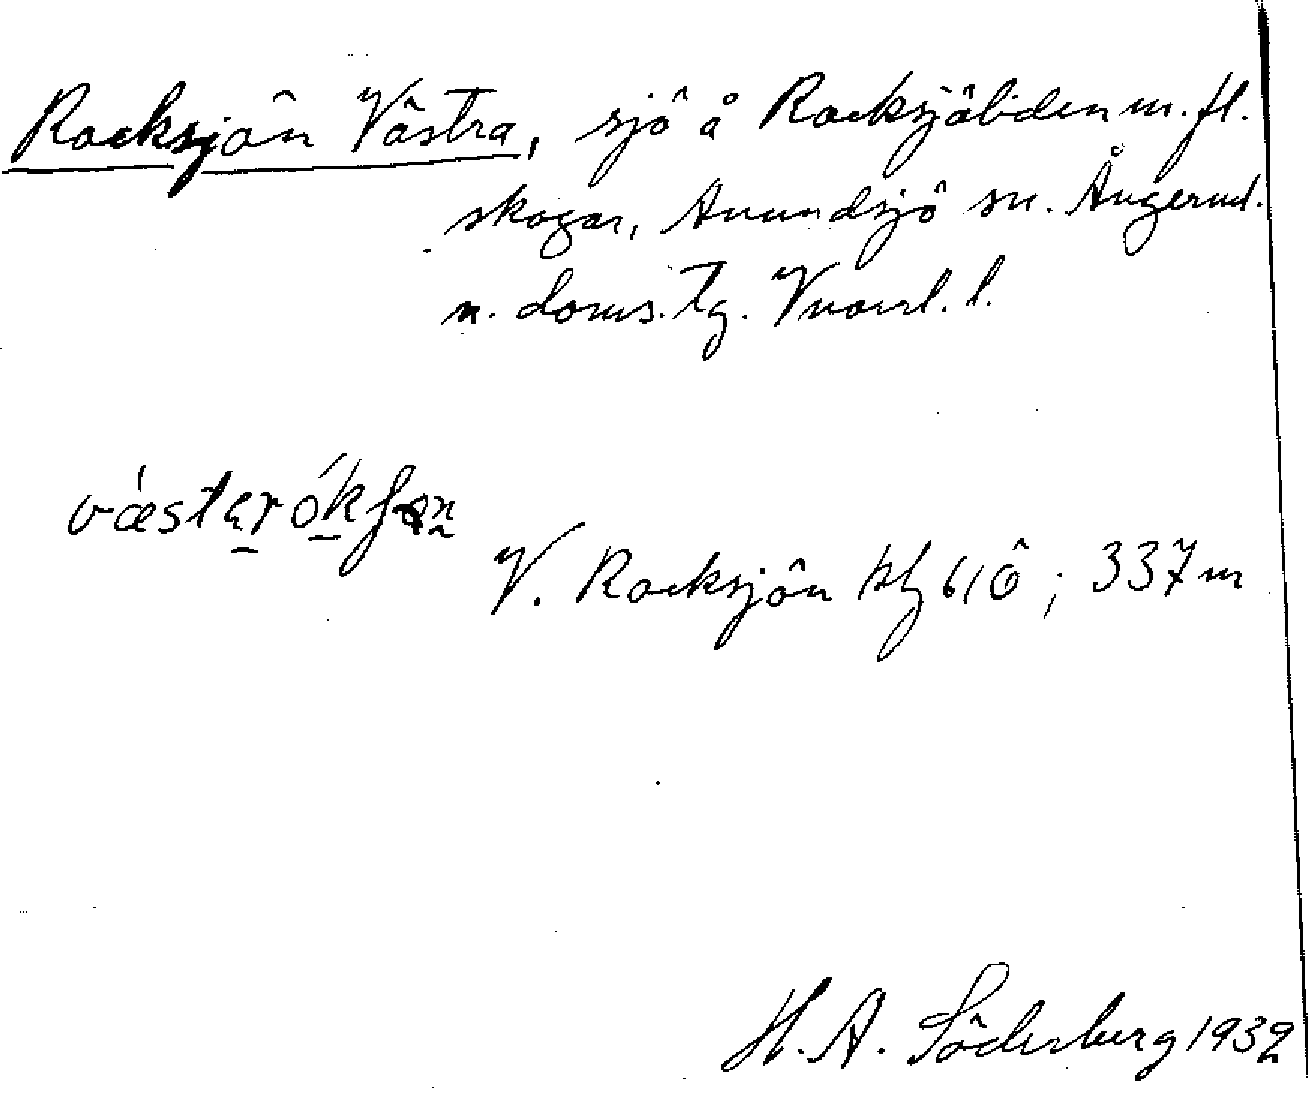 Rocksjön Västra, sjö å Rocksjöliden m. fl.
skogar, Anundsjö sn. Ångerml.
n. doms. tg. Vnorrl. l.
V. Rocksjön kbl 61 Ö; 337 m
H. A. Söderberg 1932